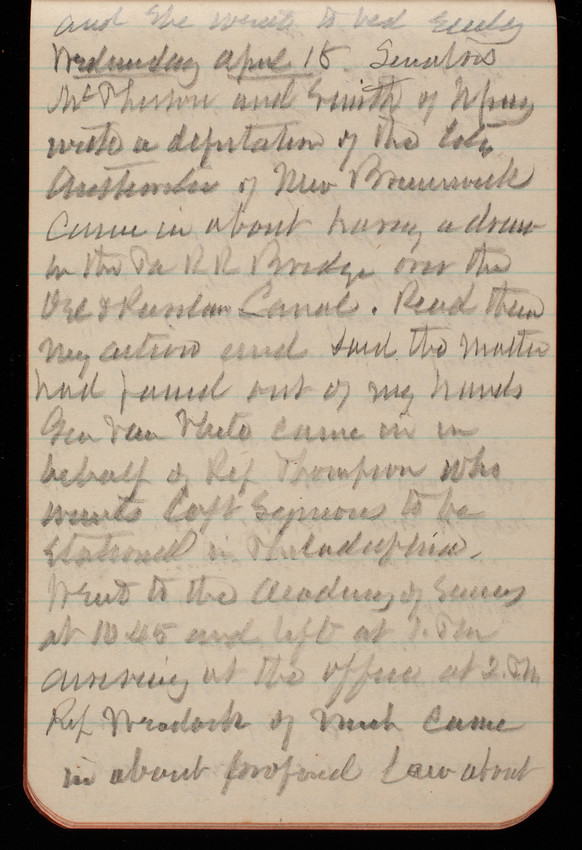 and She went to bed Early
Wednesday April 18 Senators
McPherson and Smith of N Jersey
with a deputation of the
of New Brunswick
Came in about having a draw
in the Pa R R Bridge over the
Del & Raritan Canal. Read them
my action and said the matter
had passed out of my hands
Gen Van Vliet came in in
behalf of Rep Thompson who
wants Capt Symons to be
Stationed in Philadelphia.
Went to the Academy of Sciences
at 10 45 and left at 1. PM
arriving at the office at 2. PM
Rep Weadock of Mich Came
in about proposed Law about